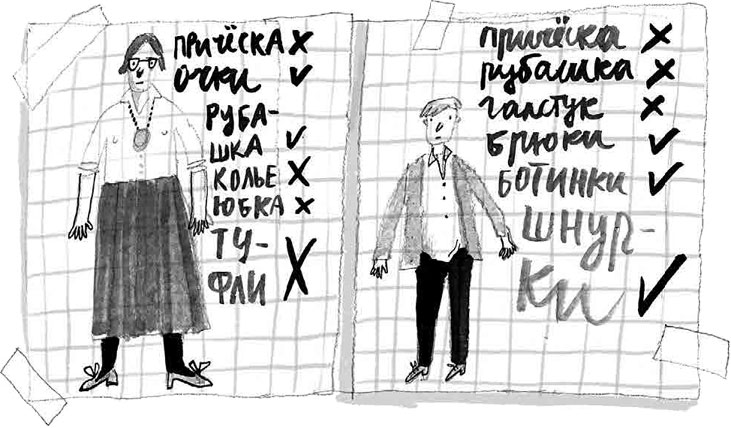 ПРИЧЁСКА ✗
ОЧКИ ✓
РУБА-
ШКА ✓
КОЛЬЕ ✗
ЮБКА ✗
ТУ-
ФЛИ ✗
причёска ✗
рубашка ✗
галстук ✗
брюки ✓
ботинки ✓
шнур-
ки ✓